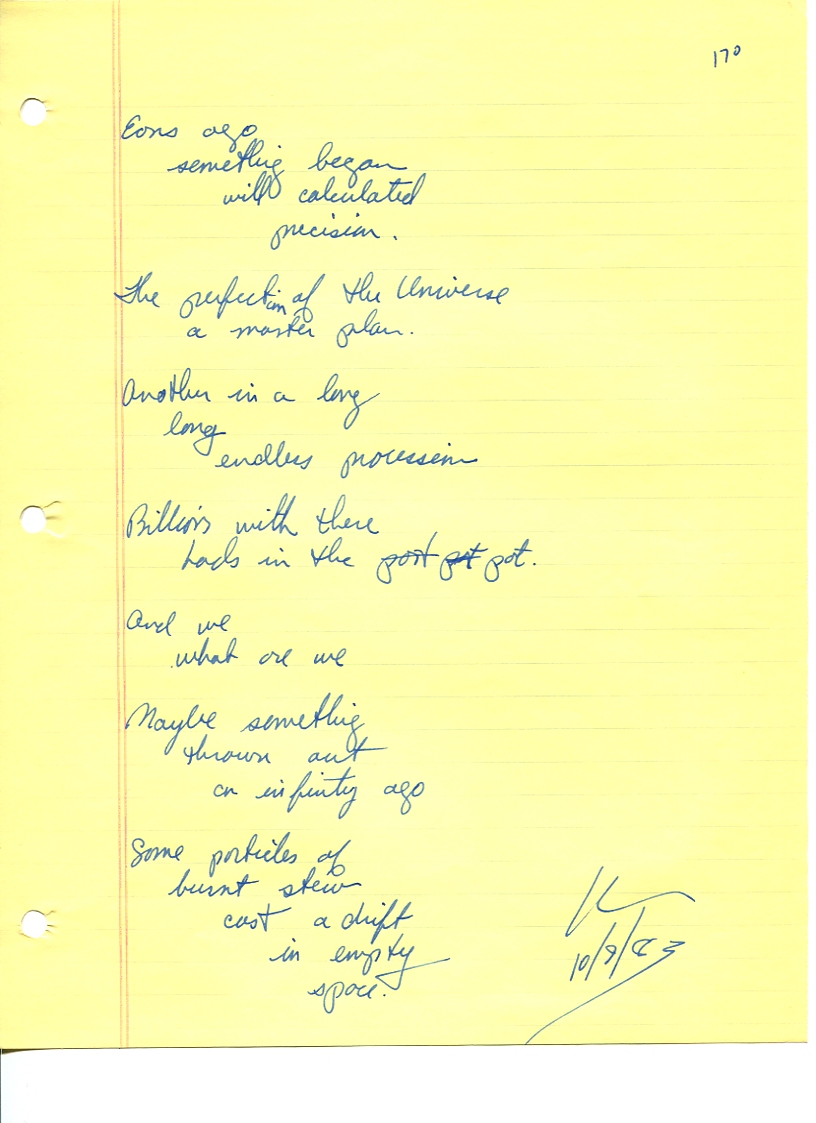 170
Eons ago
something began
with calculated
precision.
The perfection of the Universe
a master plan.
Another in a long
long
endless procession
Billions with there
hads in the port pot pot.
And we
what are we
Maybe something
thrown out
an infinty ago
Some particles of
burnt stew
cast a drift
in empty
space.
10/9/83